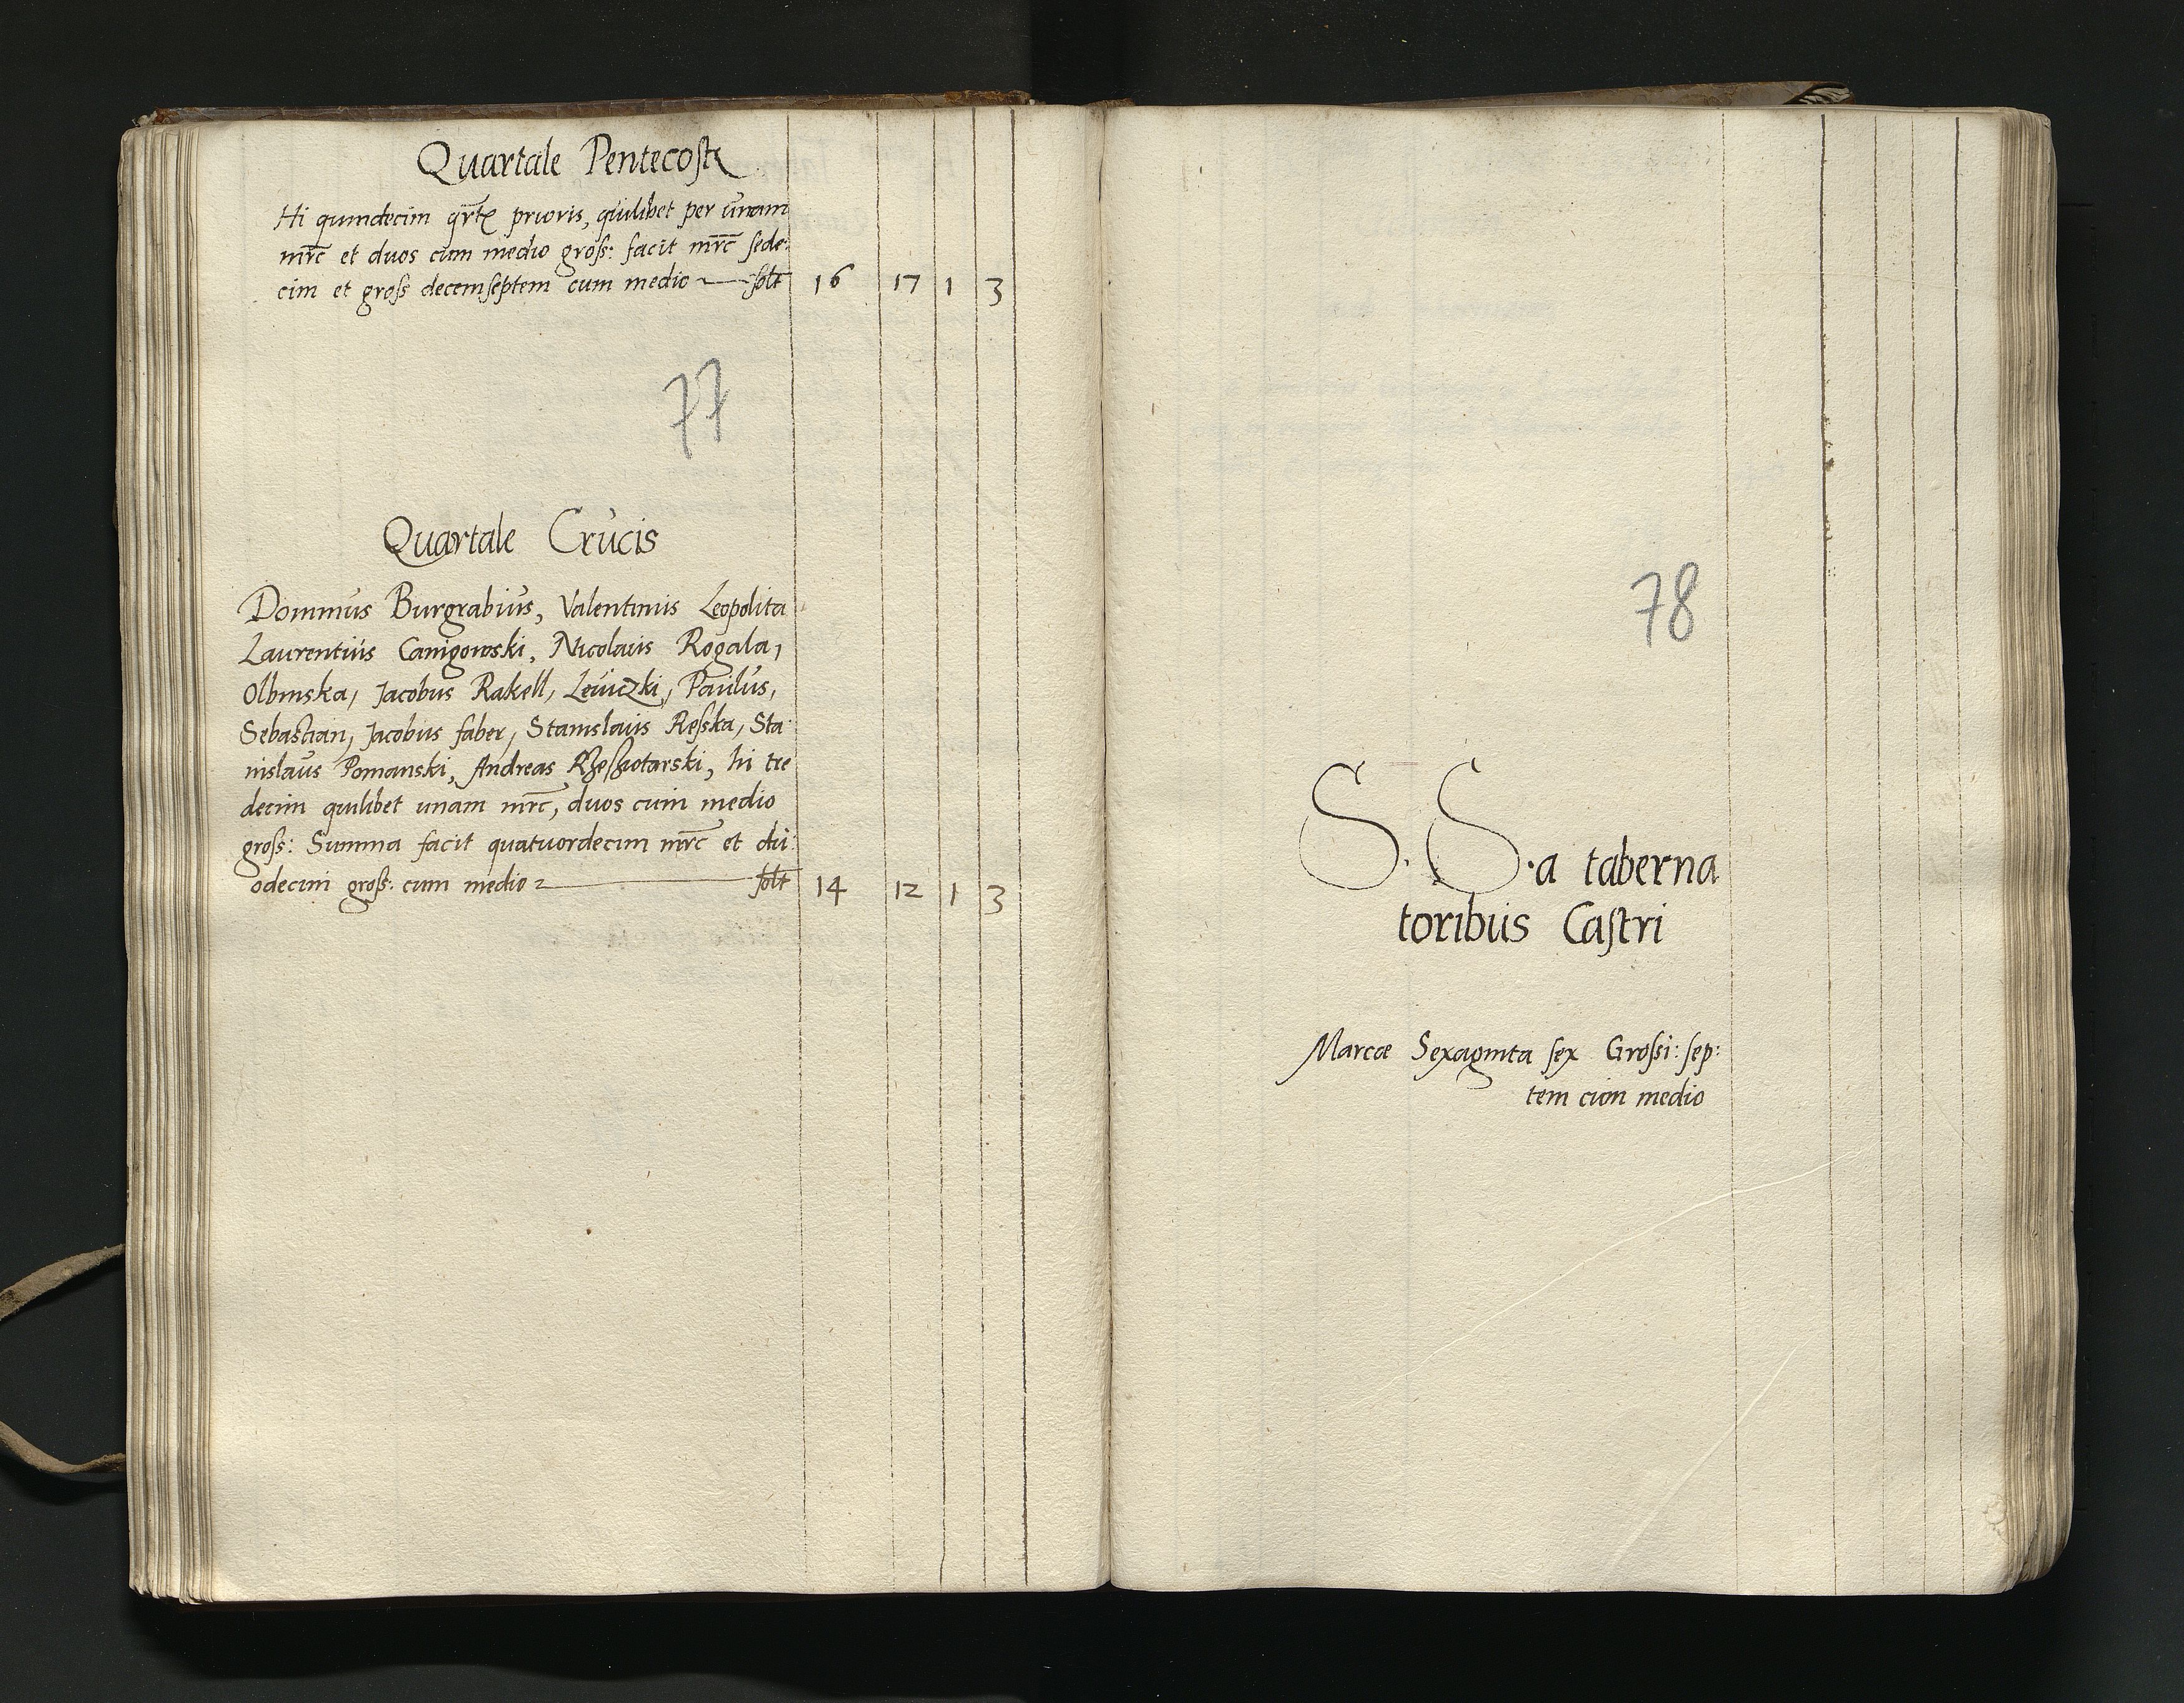 Quartale Pentecost
Hi quindecim qrt prioris, quilibet per unam
mrc et duos cum medio gross: facit mrc sede:
cim et gross decemseptem cum medio solt 16 17 1 3
77
Quartale Crucis
Dominus Burgrabius, Valentinus Leopolita
Laurentius Canigowski, Nicolaus Rogala,
Olbinska, Jacobus Rakell, Leuiczki, Paulus,
Sebastian, Jacobus faber, Stanislaus Resska, Sta
nislaus Pomanski, Andreas hi tre
decim quilibet unam mrc, duos cum medio
gross: Summa facit quatuordecim mrc et du:
odecim gross: cum medio solt 14 12 1 3
78
S. S. a taberna
toribus Castri
Marcæ Sexaginta sex Grossi: sep:
tem cum medio